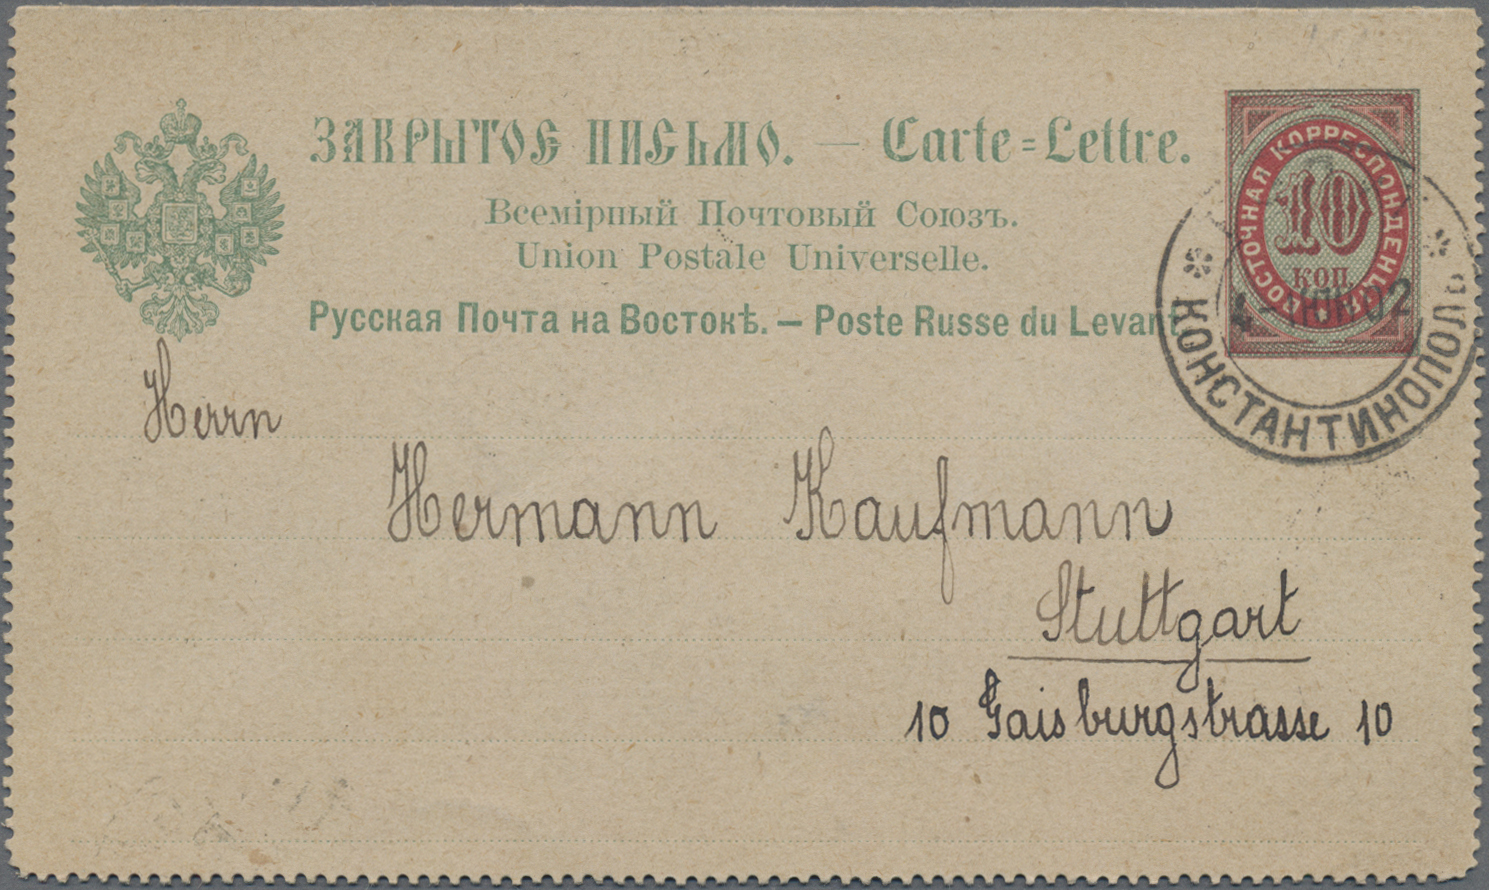 ЗАКРЫТОЕ ПИСЬМО. — Carte=Lettre.
Всемірный Почтовый Союзъ.
Union Postale Universelle.
Русская Почта на Востокѣ. — Poste Russe du Levant
ВОСТОЧНАЯ КОРРЕСПОНДЕНЦІЯ
10
КОП
КОНСТАНТИНОПОЛЬ
Herrn
Hermann Kaufmann
Stuttgart
10 Gaisburgstrasse 10